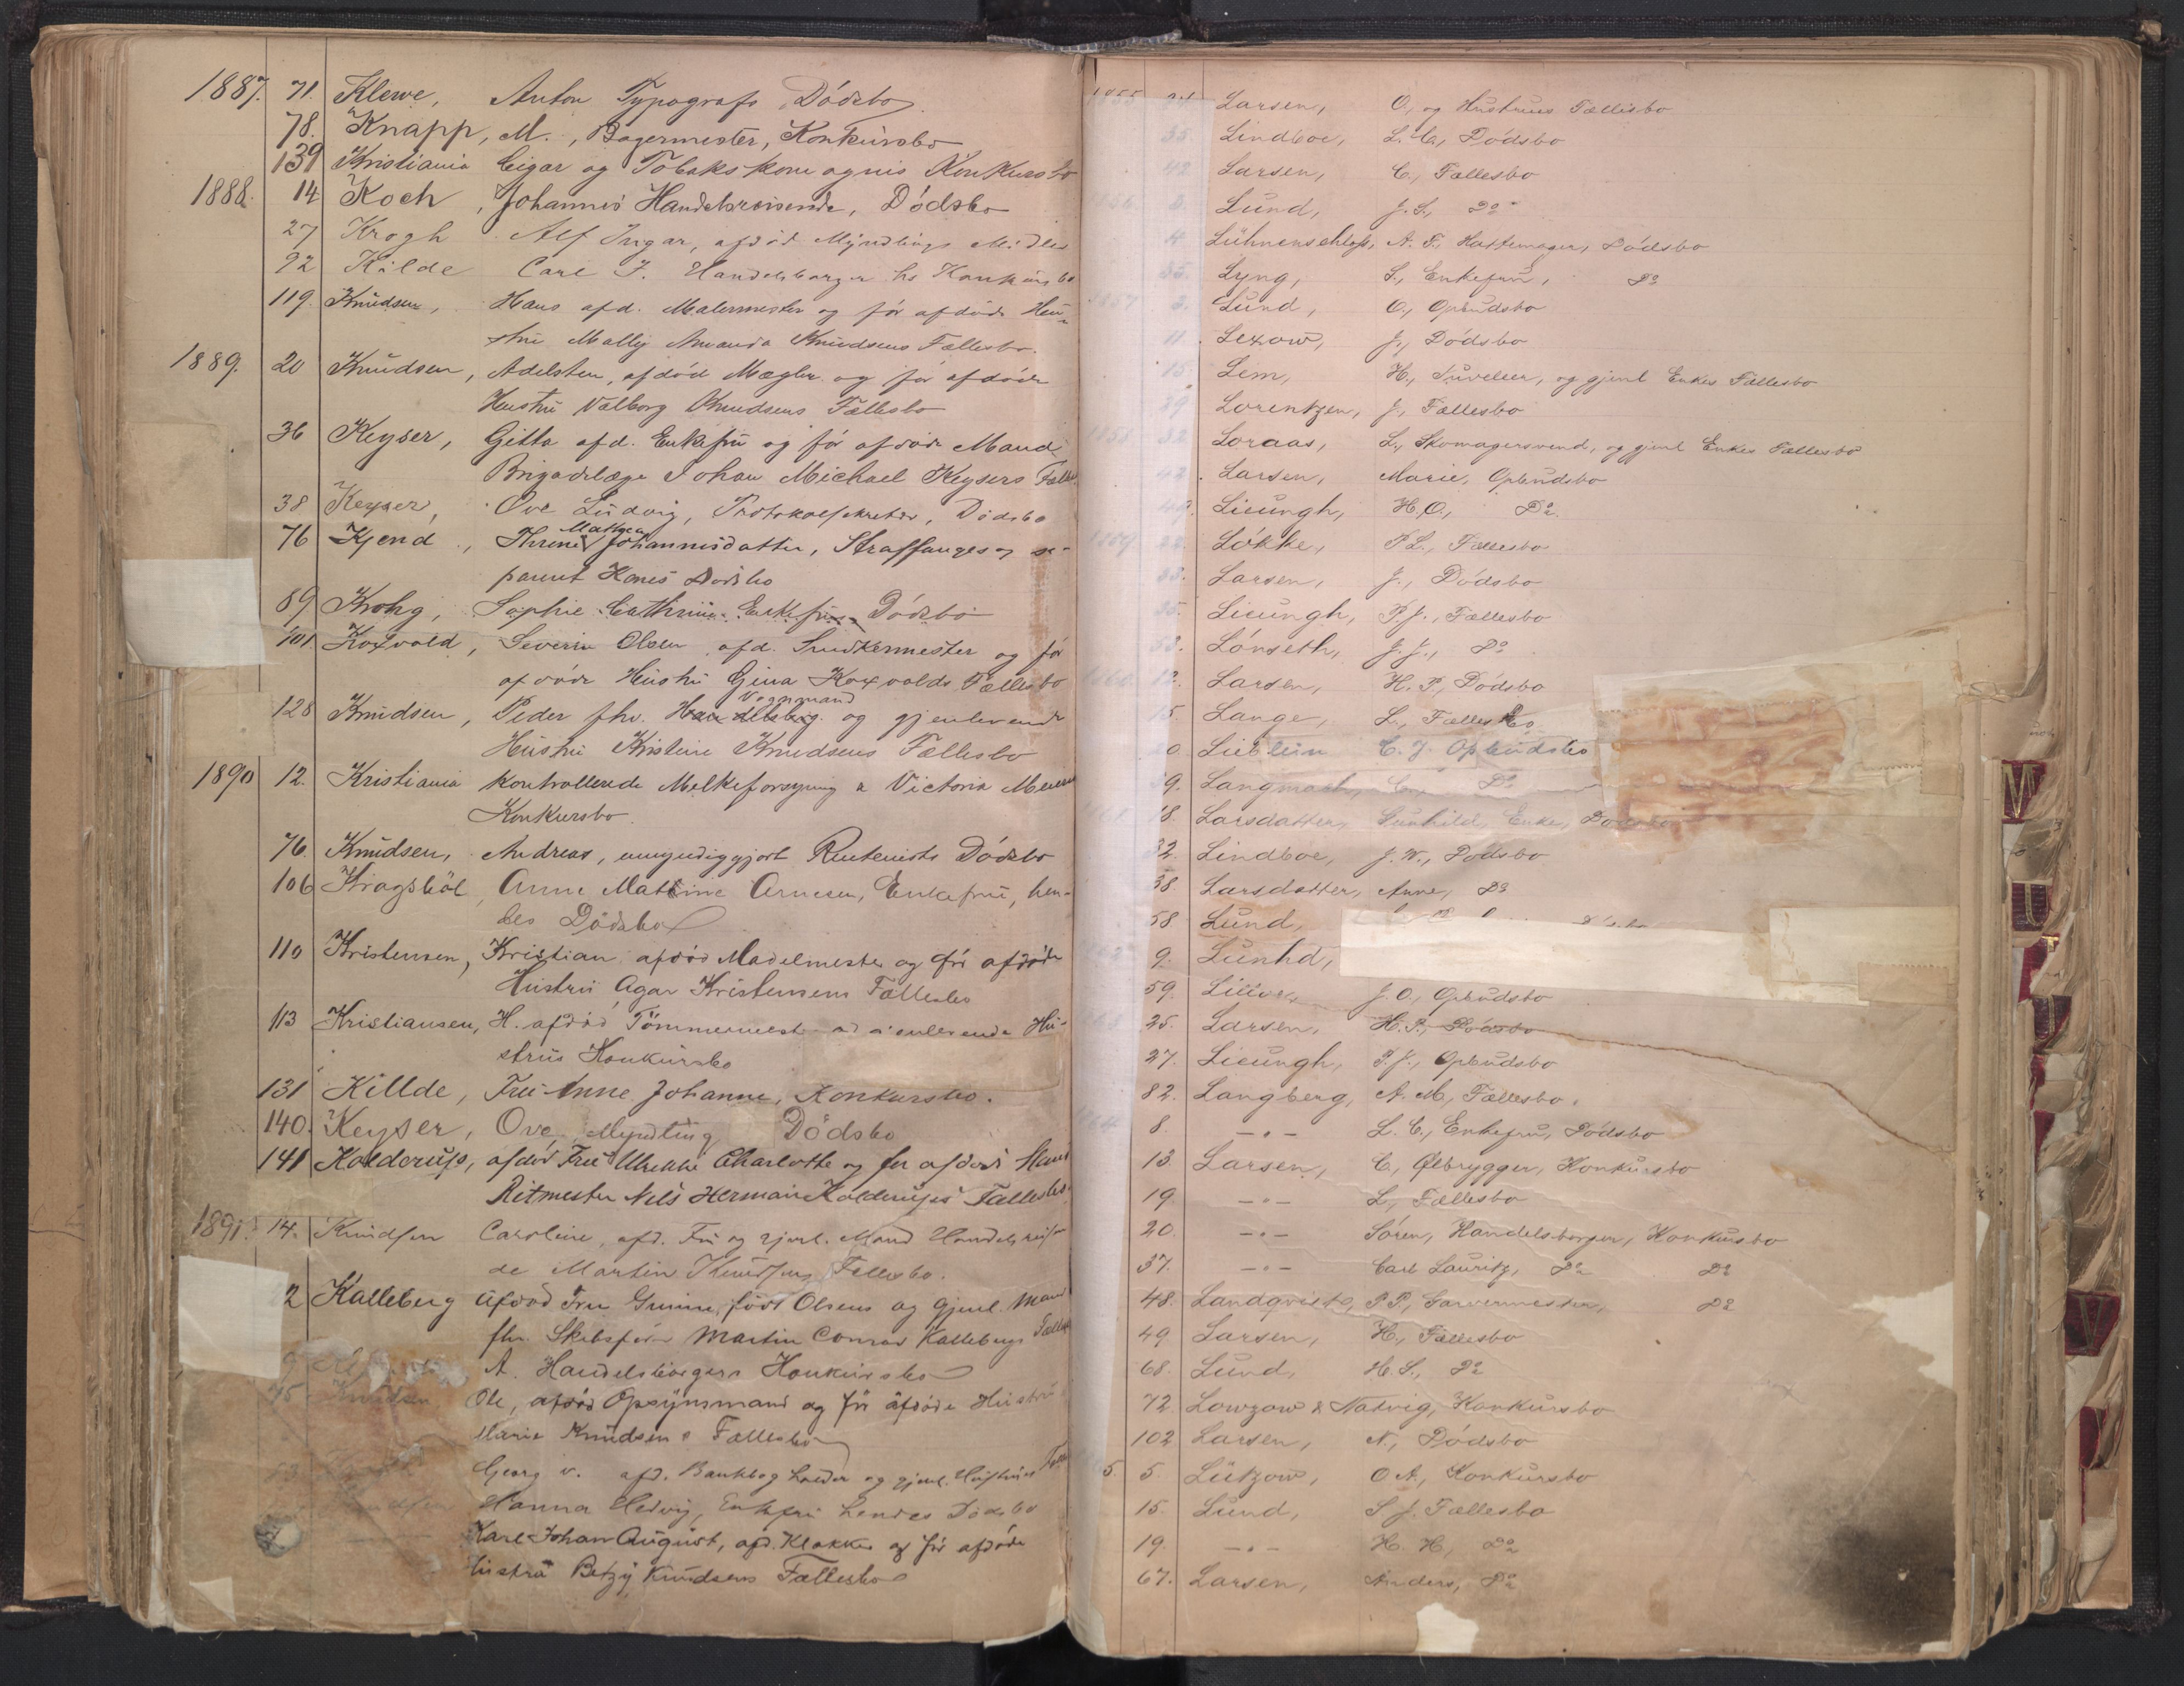 1887. 71. Klewe, Anton Typografs Dödsbo.
78. Knapp, M., Bagermester, Konkursbo
139 Kristiania Cigar og Tobaks Kompagnis Konkursbo
1888. 14 Koch, Johannes Handelsreisende, Dödsbo
27 Krogh Alf Ingar, afdöd Myndlings Midler
92 Kilde Carl J. Handelsborger hs Konkursbo
119. Knudsen, Hans afd. Malermester og för afdöde Hu-
stru Mally Amanda Knudsens Fællesbo.
1889. 20 Knudsen, Adelsten, afdöd Mægler og för afdöde
Hustru Valborg Knudsens Fællesbo
36 Keyser, Gitta afd. Enkefru og för afdöde Mand
Brigadelæge Johan Michael Keysers Fælles
38 Keyser, Ove Ludvig, Protokolsekretær, Dödsbo
Mathea
76 Kjend, Threne Johannesdatter, Straffanges og se-
parert Kones Dödsbo
89 Krohg, Sophie Cathrine Enkefrus Dödsbo
101. Koxvold, Severin Olsen afd. Snedkermester og för
afdöde Hustru Gina Koxvolds Fællesbo
Vognmand
128 Knudsen, Peder fhv. Handelsbrg. og gjenlevende
Hustru Kristine Knudsens Fællesbo
1890 12. Kristiania kontrollerede Melkeforsyning & Victoria Meieri
Konkursbo.
76. Knudsen, Andreas, umyndiggjort Rentenists Dödsbo
106 Kragsböl, Anne Mathine Arnesen, Enkefru, hen-
des Dödsbo
110 Kristensen, Kristian afdöd Madelmester og för afdöde
Hustru Agar Kristensens Fællesbo
113 Kristiansen, H. afdöd Tömmermest og gjenlevende Hu-
strus Konkursbo
131 Killde, Fru Anne Johanne, Konkursbo.
140. Keyser, Ove, Myndling Dödsbo
141 Kalderup, afdöd Fru Ulrikke Charlotte og för afdöde Mand
Ritmester Nils Herman Kalderups Fællesbo
1891. 14. Knudsen Caroline, afd. Fru og gjenl. Mand Handelsreisen
de Martin Knudsens Fællesbo.
2 Kalleberg Afdöd Fru Gunine, född Olsens og Gjenl. Mand
fhv. Skibsförer Martin Conrad Kallebergs Fælles
9 A. Handelsborgers Konkursbo
45 Knudsen Ole, afdöd Opsynsmand og för afdöde Hustru
Marie Knudsens Fællesbo
Georg v. afd. Bankbogholder og gjenl. Hustrus
Knudsen Hanna Hedvig, Enkefru hendes Dödsbo
Karl Johan August, afd. Klokker og för afdöde
Hustru Betzy Knudsens Fællesbo
1855 Larsen, O, og Hustrues Fællesbo
35 Lindboe, L. C., Dödsbo
42 Larsen, C., Fællesbo
1856 3. Lund, J. S., Do
4 Lühnenschloss, A. F., Hattemager, Dödsbo
35. Lyng, S., Enkefru, Do
1857 3. Lund, O., Opbudsbo
11. Lexow, J., Dödsbo
15. Lem, H., Juveleer, og gjenl Enkes Fællesbo
39 Lorentzen, J., Fællesbo
1858 32 Loraas, L., Skomagersvend, og gjenl Enkes Fællesbo
42. Larsen, Marie, Opbudsbo
49. Lieungh, H. O., Do.
1859 22. Lökke, P L., Fællesbo
33. Larsen, J., Dödsbo
35. Lieungh, P. J., Fællesbo
53. Lönseth, J. J., Do
1860 12. Larsen, H. P., Dödsbo
15. Lange, L., Fællesbo
20. Lieblein C. J. Opbudsbo
29. Langmach, C., Do
18. Larsdatter, Gunhild, Enke, Dödsbo
32. Lindboe, J. W., Dödsbo
38 Larsdatter, Anne, Do
58 Lund,
9. Lunhd,
59. J. O., Opbudsbo
25. Larsen, H. P., Dödsbo
27. Lieungh, P. J., Opbudsbo
82. Langberg, A. M, Fællesbo.
8. —〃— L. C., Enkefru, Dödsbo
13. Larsen, C, Ølbrygger, Konkursbo
19. —〃— L, Fællesbo
20. —〃— Sören, Handelsborger, Konkursbo
37. —〃— Carl Lauritz, Do Do
48. Landqvist, P. P., Garvermester, Do
49 Larsen, H., Fællesbo
68. Lund, H. S., Do
72. Lowzow & Natvig, Konkursbo
102 Larsen, N, Dödsbo
5. 5. Lützow, O A., Konkursbo
15. Lund, S J. Fællesbo
19. —〃— H. H, Do
67. Larsen, Anders, Do
M
U
V